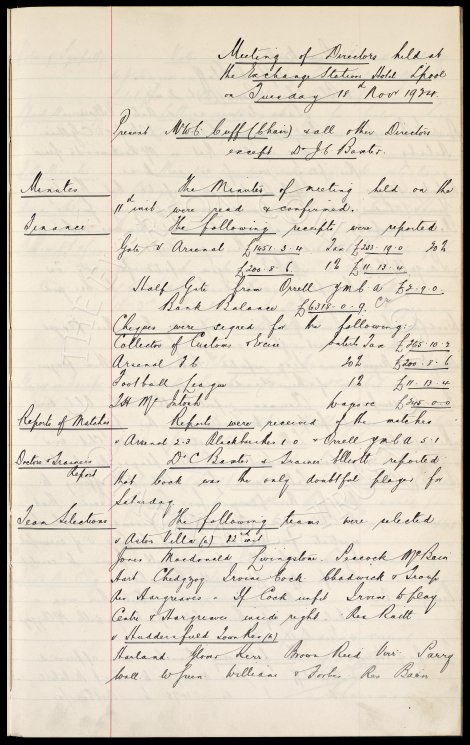 Meeting of Directors held at
the Exchange Station Hotel Lpool
on Tuesday 18th Novr 1924.
Present Mr W C Cuff (Chair) & all other Directors
except Dr J C Baxter.
Minutes The Minutes of meeting held on the
11th inst were read & confirmed.
Finance The following receipts were reported
Gate v Arsenal £1451.3.4 Tax £233.19.0 20%
£200.8.6 1% £11.13.4
Half Gate from Orrell YMCA £2.9.0
Bank Balance £6318.0.9 Cr
Cheques were signed for the following:
Collector of Customs & Excise Entets Tax £268.10.2
Arsenal F C 20% £200.8.6
Football League 1% £11.13.4
T H McIntosh wages £345.0.0
Reports of Matches Reports were received of the matches
v Arsenal 2-3 Blackburn 1.0 v Orrell YMCA 5.1
Doctors & Trainers Dr C Baxter & Trainer Elliott reported
Report
that Cock was the only doubtful player for
Saturday
Team Selections The following teams were selected
v Aston Villa (a) 22nd inst
Jones Macdonald Livingstone Peacock McBain
Hart Chedgzoy Irvine Cock Chadwick & Troup
Res Hargreaves - If Cock unfit Irvine to play
Centre & Hargreaves inside right Res Raitt
v Huddersfield Town Res (a)
Harland Kerr Brown Reid Virr Parry
Wall Green Williams & Forbes Res Bain